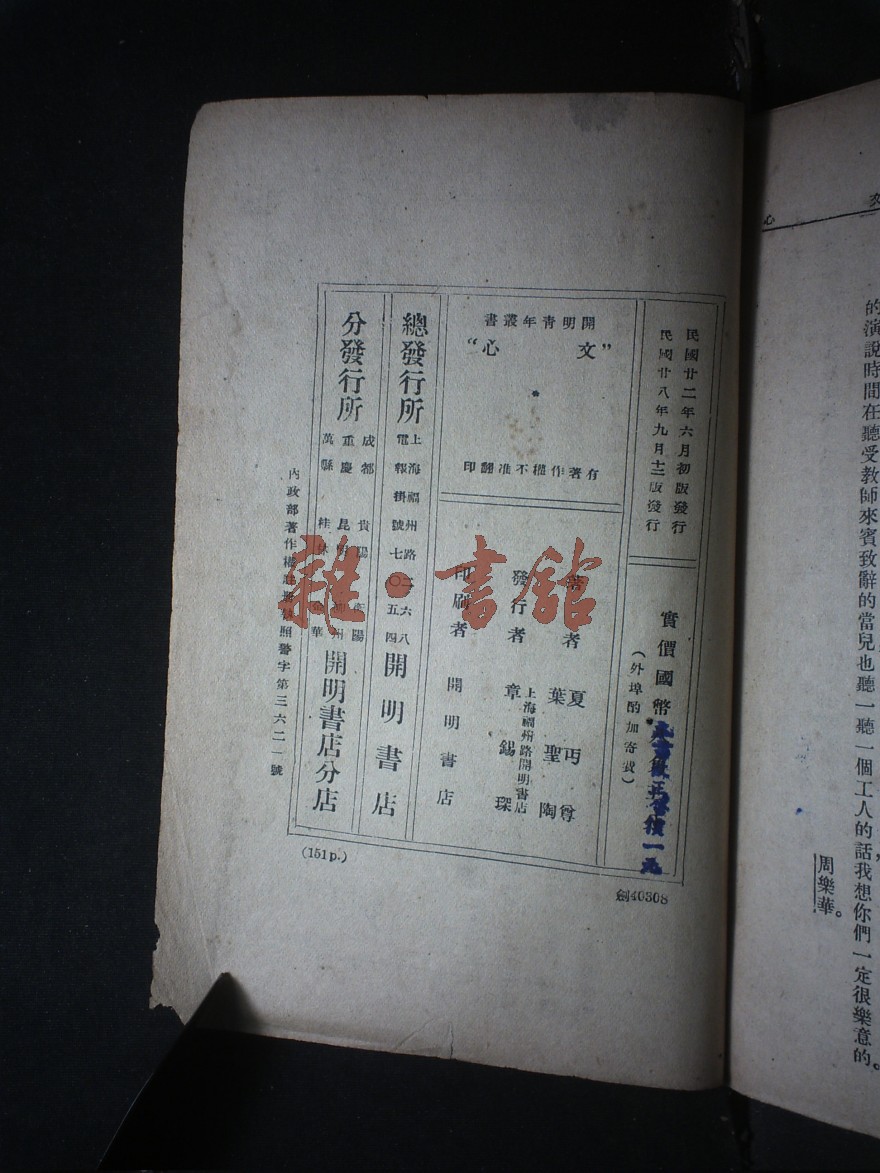 文心
的演說時間在聽受教師來賓致辭的當兒也聽一聽一個工人的話我想你們一定很樂意的。
周樂華。
民國廿二年六月初版發行
民國廿八年九月十二版發行
實價國幣
（外埠酌加寄費）
開明青年叢書
“文心”
有著作權不准翻印
著者
夏丏尊
葉聖陶
發行者
上海福州路開明書店
章錫琛
印刷者
開明書店
總發行所
上海福州路二六八
電報掛號七〇五四
開明書店
分發行所
成都
重慶
萬縣
貴陽
昆明
桂林
衡陽
金華
開明書店分店
內政部著作權註冊執照警字第三六二一號
(151p.)
劍40308
雜·書館